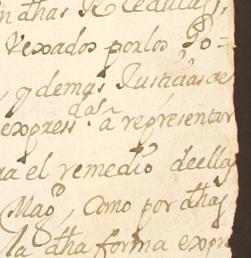 n dhas R.s Cedulas,
Vexados por los Po=
, y demas Justicias de
express.das a representar
ra el remedio de ellas
Mag.d, Como por dhas
la dha forma expre